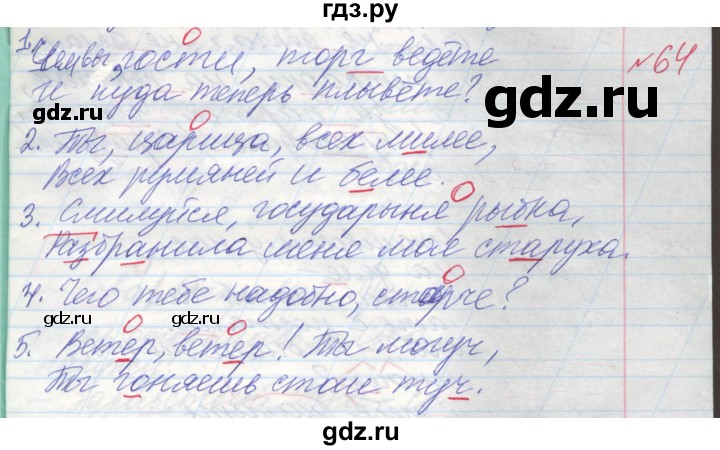 гдз.ру
1. Чем вы, гости, торг ведёте
№64
И куда теперь плывёте?
gdz.ru
2. Ты, царица, всех милее,
Всех румяней и белее.
3. Смилуйся, государыня рыбка,
Разбранила меня моя старуха.
4. Чего тебе надобно, старче?
gdz.ru
gdz.ru
5. Ветер, ветер! Ты могуч,
Ты гоняешь стаи туч.
gdz.ru